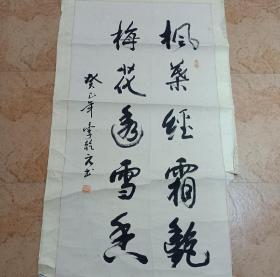 枫叶經霜艳
梅花透雪香
癸巳年李乾元书